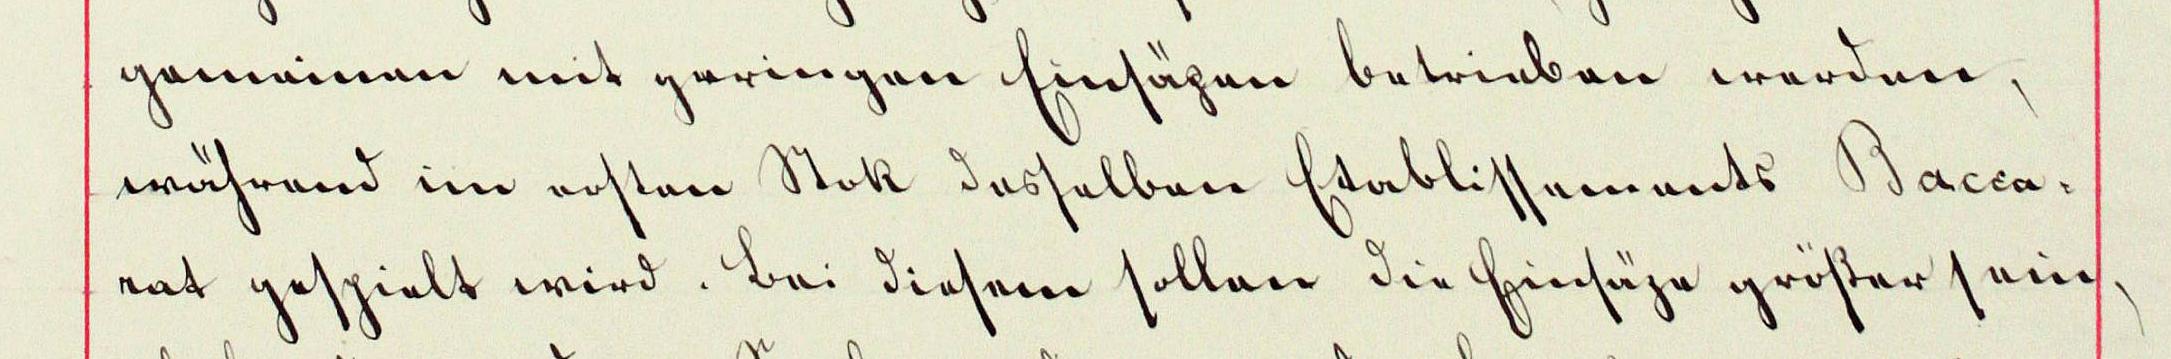 gemeinen mit geringen Einsäzen betrieben werden,
während im ersten Stok desselben Etablissements Bacca-
rat gespielt wird. Bei diesem sollen die Einsäze größer sein,